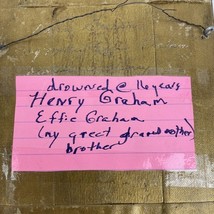 drowned @ 16 years
Henry Graham
Effie Graham
(my great grandmother)
brother